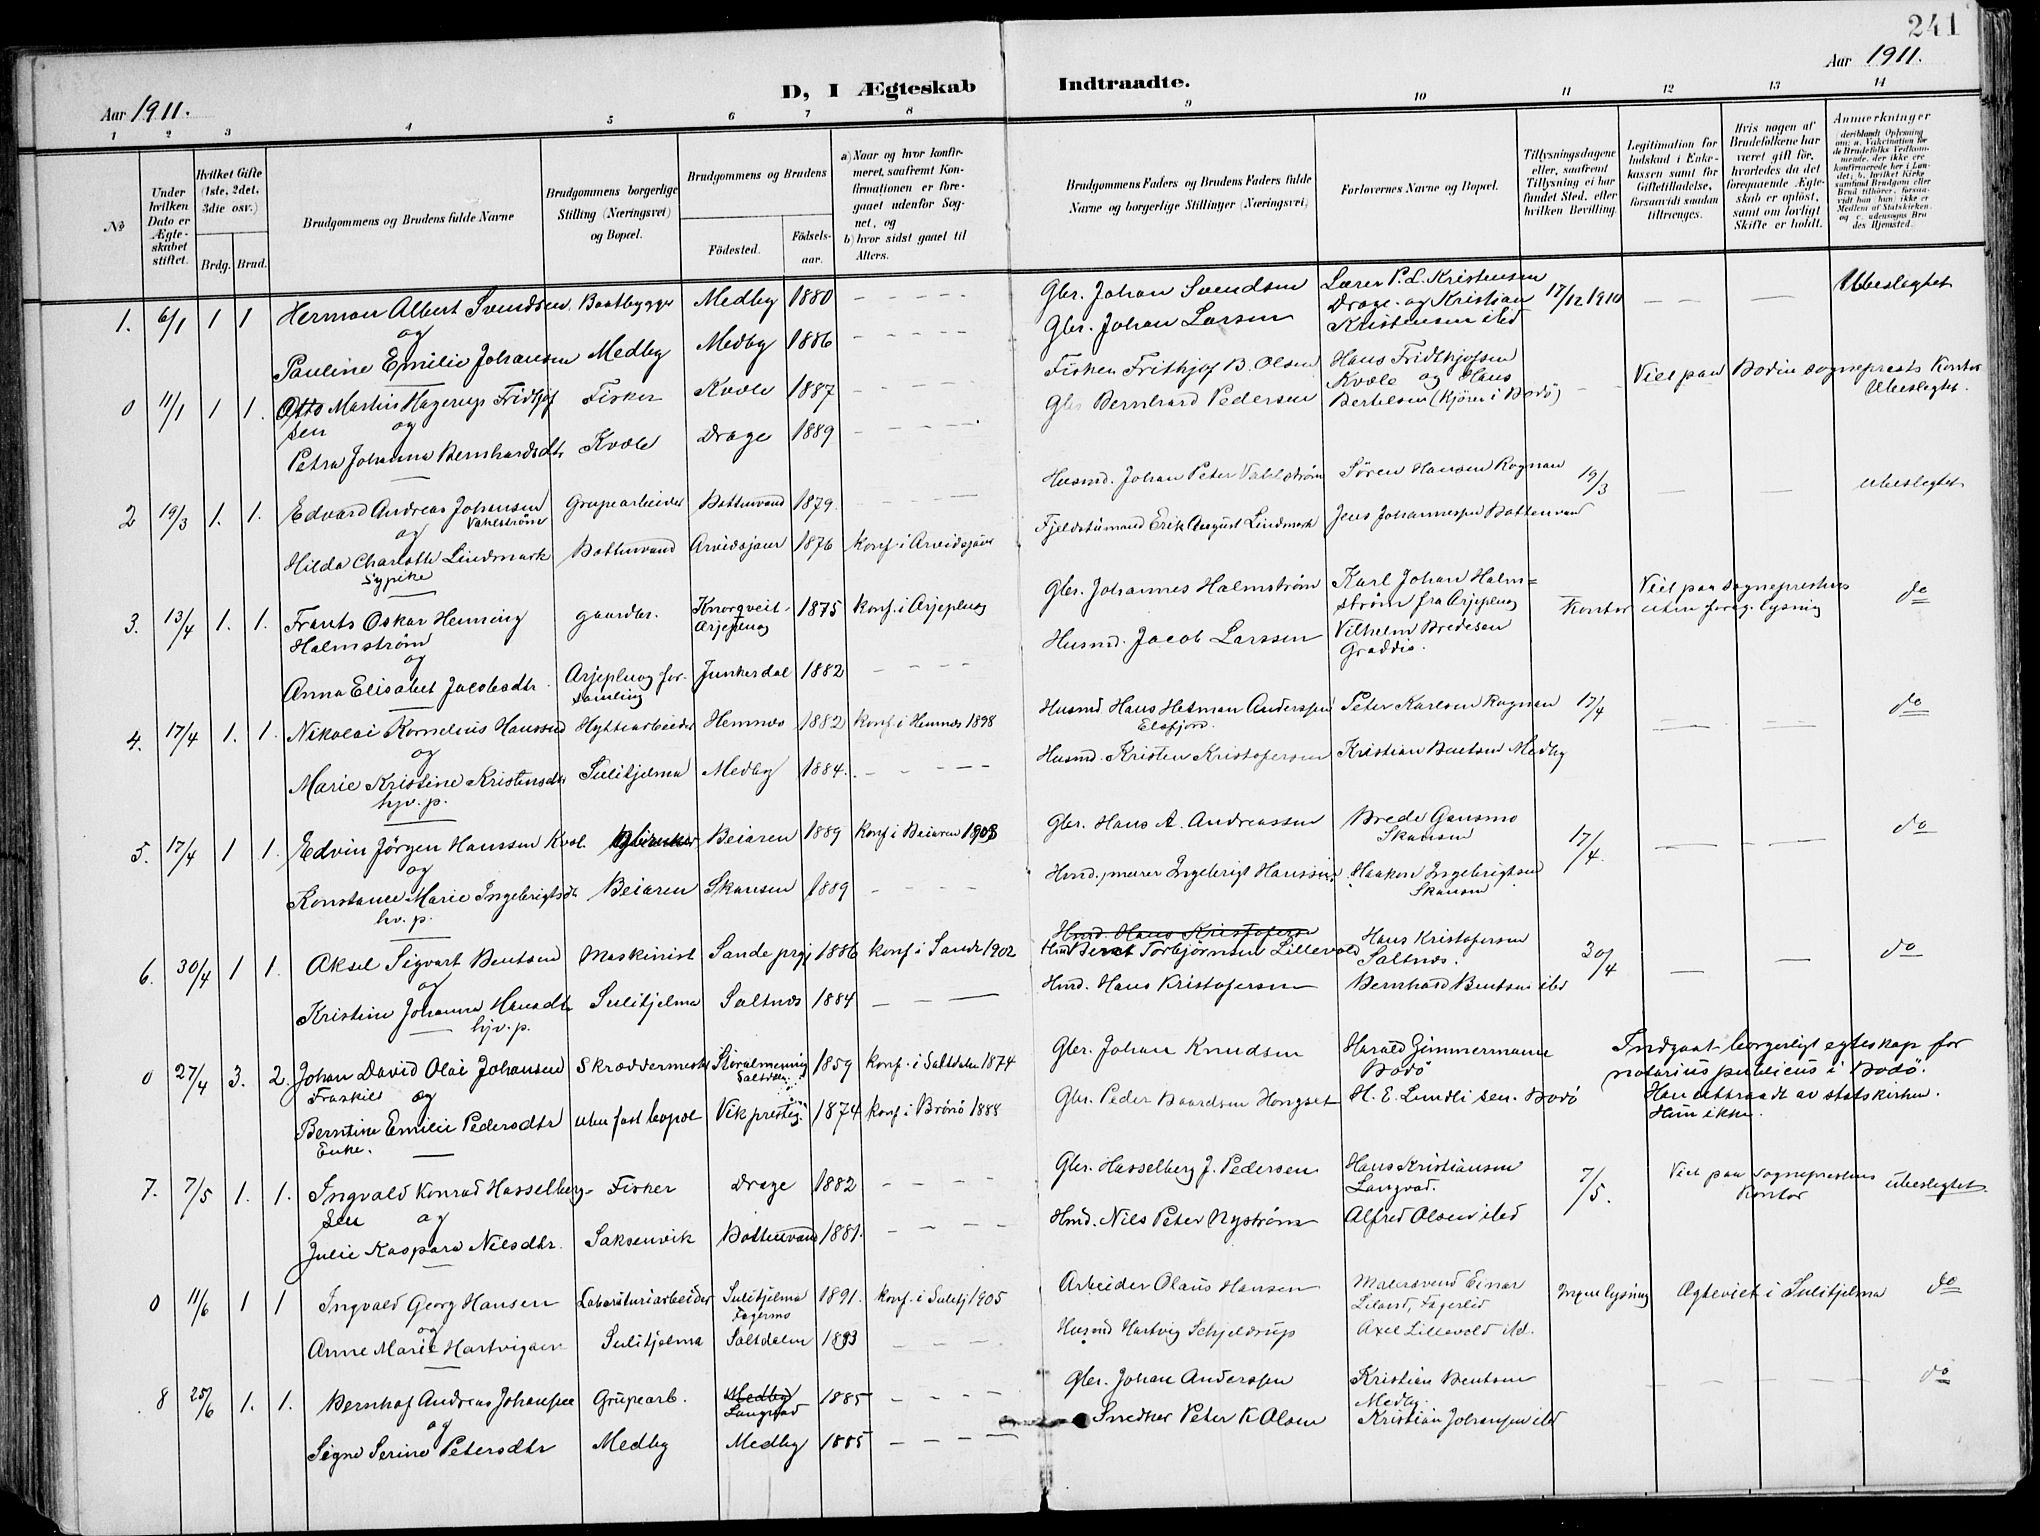 241
Aar 1911.
Aar 1911.
D, I Ægteskab Indtraadte.
1 2 3 4 5 6 7 8 9 10 11 12 13 14
No
Under hvilken Dato er Ægteskabet stiftet.
Hvilket Gifte (1ste, 2det, 3die osv.)
Brdg. Brud.
Brudgommens og Brudens fulde Navne
Brudgommens borgerlige Stilling (Næringsvei) og Bopæl.
Brudgommens og Brudens
Födested. Födselsaar.
a) Naar og hvor konfirmeret, saafremt Konfirmationen er foregaaet udenfor Sognet, og
b) hvor sidst gaaet til Alters.
Brudgommens Faders og Brudens Faders fulde Navne og borgerlige Stillinger (Næringsvei)
Forlovernes Navne og Bopæl.
Tillysningsdagene eller, saafremt Tillysning ei har fundet Sted, efter hvilken Bevilling.
Legitimation for Indskud i Enkekassen samt for Giftetilladelse, forsaavidt saadan tiltrænges.
Hvis nogen af Brudefolkene har været gift før, hvorledes da det foregaaende Ægteskab er opløst, samt om lovligt Skifte er holdt.
Anmærkninger
1. 6/1 1 1 Herman Albert Svendsen Baatbygger Medby 1880 Gbr. Johan Svendsen Lærer P. L. Kristensen Drage og Kristian Kristensen ibd 17/12 1910 Ubeslegtet
og
Pauline Emilie Johansen Medby Medby 1886 Gbr. Johan Larsen
0 11/1 1 1. Otto Martin Hagerup Fridtjofsen Fisker Kvæle 1887 Fisker Frithjof B. Olsen Hans Fridthjofsen Kvæle og Hans Bertelsen (Kjører i Bodö) Viet paa Bodin sogneprests Kontor Ubeslegtet.
og
Petra Johanna Bernhardsdtr Kvæle Drage 1889 Gbr Bernhard Pedersen
2 19/3 1. 1. Edvard Andreas Johansen Vahlström Grupearbeider Bottenvand 1879. Husmd. Johan Peter Vahlström Sören Hansen Rognan 19/3 Ubeslegtet
og
Hilda Charlotte Lindmark Bottenvand Arvidsjaur 1876 Konf. i Arvidsjaur Erik August Lindmark Jens Johannessen Bottenvand
Sypike
3. 13/4 1. 1. Frants Oskar Henning Halmström gaardbr. Arjepluog 1875 Konf. i Arjepluog Gbr. Johannes Halmström Karl Johan Halmström fra Arjepluog Viet paa Sogneprestens Kontor uten foreg. lysning do
og
Anna Elisabet Jacobsdtr. Arjepluog forsamling Junkerdal 1882 Husmd. Jacob Larssen Vilhelm Bredesen Graddis.
4. 17/4 1. 1. Nikolai Kornelius Hanssen Hyttearbeider Hemnes 1882 Konf. i Hemnes 1898 Husmd. Hans Hetman Anderssen Elsfjord. Peter Karlsen Rognan 17/4 do
og
Marie Kristine Kristensdtr Sulitjelma Medby 1884. Husmd. Kristen Kristofersen Kristian Bentsen Medby
hjv. p.
5. 17/4 1 1. Edvin Jörgen Hanssen Kvæl Beiaren 1889 Konf. i Beiaren 1903 Gbr. Hans A. Andreassen Brede Gausmo Skansen 17/4. do
og
Konstance Marie Ingebrigtsdtr Beiaren Skansen 1889 Hmd., murer Ingebrigt Hanssen. Haakon Ingebrigtsen Skansen
hv. p.
6. 30/4 1 1. Aksel Sigvart Bentsen Maskinist Sande prgj 1886 Konf i Sande 1902 Hmd. Hans Kristofersen Hmd Berat Torbjörnsen Lillevold Hans Kristofersen Saltnes. 30/4 do
og
Kristine Johanna Hansdtr Sulitjelma Saltnes 1884 Hmd. Hans Kristofersen Bernhard Bentsen ibd
hjv. p.
0 27/4 3. 2. Johan David Olai Johansen Skræddermester Storalmening Saltdalen 1859 Konf. i Saltdalen 1874 Gbr. Johan Knudsen Harald Zimmermann Bodö Indgaat borgerligt egteskap for notarius publicus i Bodö.
Fraskilt og
Berntine Emilie Pedersdtr uten fast bopæl Vik prestegj. 1874 Konf. i Brönö 1888 Gbr. Peder Baardsen Hongset H. E. Lundli sen. Bodö Han uttraadt av statskirken. Hun ikke.
Enke.
7. 7/5 1. 1. Ingvald Konrad Hasselbergsen Fisker Drage 1882 Gbr. Hasselberg J. Pedersen Hans Kristiansen Langvad. 7/5. Viet paa Sogneprestens Kontor Ubeslegtet.
og
Julie Kaspara Nilsdtr. Saksenvik Bottenvand 1881. Hmd. Nils Peter Nyström Alfred Olsen ibd
0 11/6 1 1 Ingvald Georg Hansen Laboratoriarbeider Sulitjelma Fagermo 1891. Konf. i Sulitj 1905 Arbeider Olaus Hansen Malersvend Einar Fagerlid Ingen lysning Ægteviet i Sulitjelma do
og
Anne Marie Hartvigsen Sulitjelma Saltdalen 1893 Husmd Hartvig Schjeldrup Axel Lillevold ibd.
8 25/6 1. 1. Bernhof Andreas Johansen Grupearb. Medby Langvad 1885 Gbr. Johan Anderssen Kristian Bentsen Medby. do
og
Signe Serine Petersdtr Medby Medby 1885 Snedker Peter K Olsen Kristian Johansen ibd